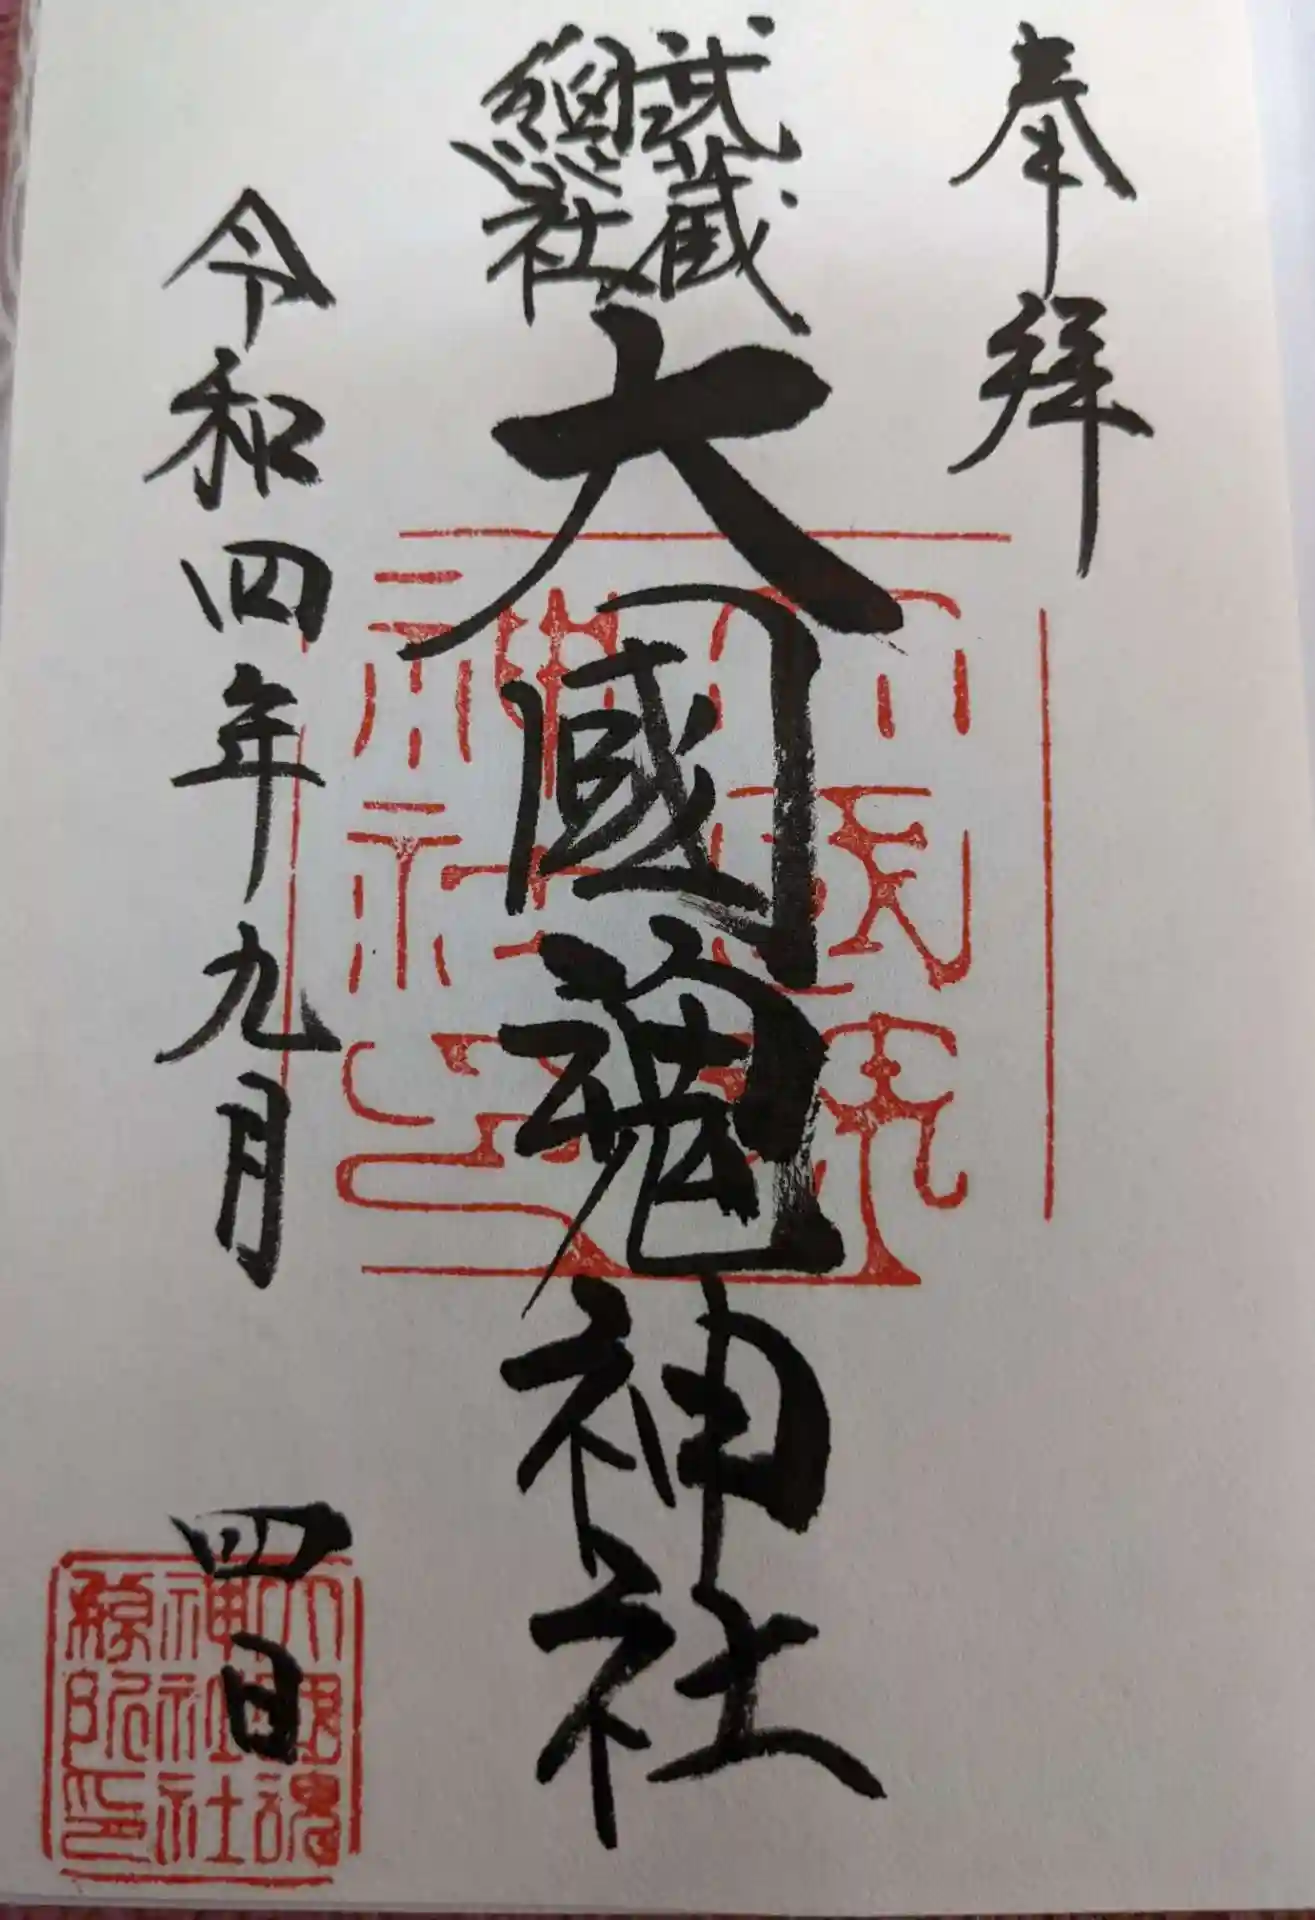 奉拝
武蔵
總社
大國魂神社
令和四年九月 四日
大國魂
神社社